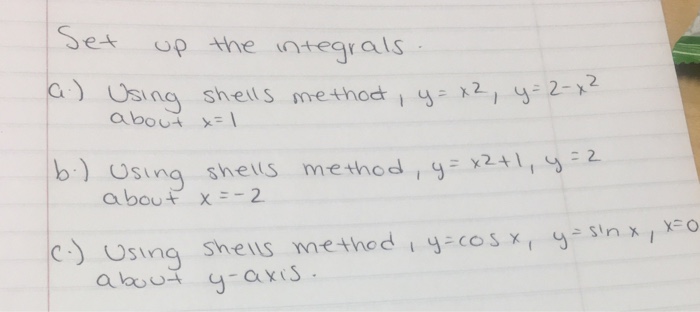 Set up the integrals.
a.) Using shells method, y = x2, y = 2-x²
about x=1
b.) Using shells method, y = x2+1, y = 2
about x = -2
c.) Using shells method, y=cos x, y = sin x, x=0
about y-axis.